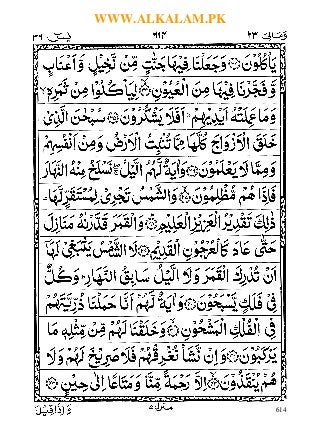 WWW.ALKALAM.PK
يٰسٓ ٣٦
٦١٤
وَمَالِیَ ٢٣
يَاْكُلُوْنَ ۝ وَجَعَلْنَا فِيْهَا جَنّٰتٍ مِّنْ نَّخِيْلٍ وَّ اَعْنَابٍ
وَّ فَجَّرْنَا فِيْهَا مِنَ الْعُيُوْنِ ۝ لِيَاْكُلُوْا مِنْ ثَمَرِهٖ ۙ
وَمَا عَمِلَتْهُ اَيْدِيْهِمْ ؕ اَفَلَا يَشْكُرُوْنَ ۝ سُبْحٰنَ الَّذِیْ
خَلَقَ الْاَزْوَاجَ كُلَّهَا مِمَّا تُنْۢبِتُ الْاَرْضُ وَمِنْ اَنْفُسِهِمْ
وَمِمَّا لَا يَعْلَمُوْنَ ۝ وَاٰيَةٌ لَّهُمُ الَّيْلُ ۖۚ نَسْلَخُ مِنْهُ النَّهَارَ
فَاِذَا هُمْ مُّظْلِمُوْنَ ۝ وَالشَّمْسُ تَجْرِیْ لِمُسْتَقَرٍّ لَّهَا ؕ
ذٰلِكَ تَقْدِيْرُ الْعَزِيْزِ الْعَلِيْمِ ۝ وَالْقَمَرَ قَدَّرْنٰهُ مَنَازِلَ
حَتّٰی عَادَ كَالْعُرْجُوْنِ الْقَدِيْمِ ۝ لَا الشَّمْسُ يَنْۢبَغِیْ لَهَاۤ
اَنْ تُدْرِكَ الْقَمَرَ وَلَا الَّيْلُ سَابِقُ النَّهَارِ ؕ وَكُلٌّ
فِیْ فَلَكٍ يَّسْبَحُوْنَ ۝ وَاٰيَةٌ لَّهُمْ اَنَّا حَمَلْنَا ذُرِّيَّتَهُمْ
فِی الْفُلْكِ الْمَشْحُوْنِ ۝ وَخَلَقْنَا لَهُمْ مِّنْ مِّثْلِهٖ مَا
يَرْكَبُوْنَ ۝ وَاِنْ نَّشَاْ نُغْرِقْهُمْ فَلَا صَرِيْخَ لَهُمْ وَلَا
هُمْ يُنْقَذُوْنَ ۝ اِلَّا رَحْمَةً مِّنَّا وَمَتَاعًا اِلٰی حِيْنٍ ۝
وَاِذَا قِيْلَ
منزل ٥
614